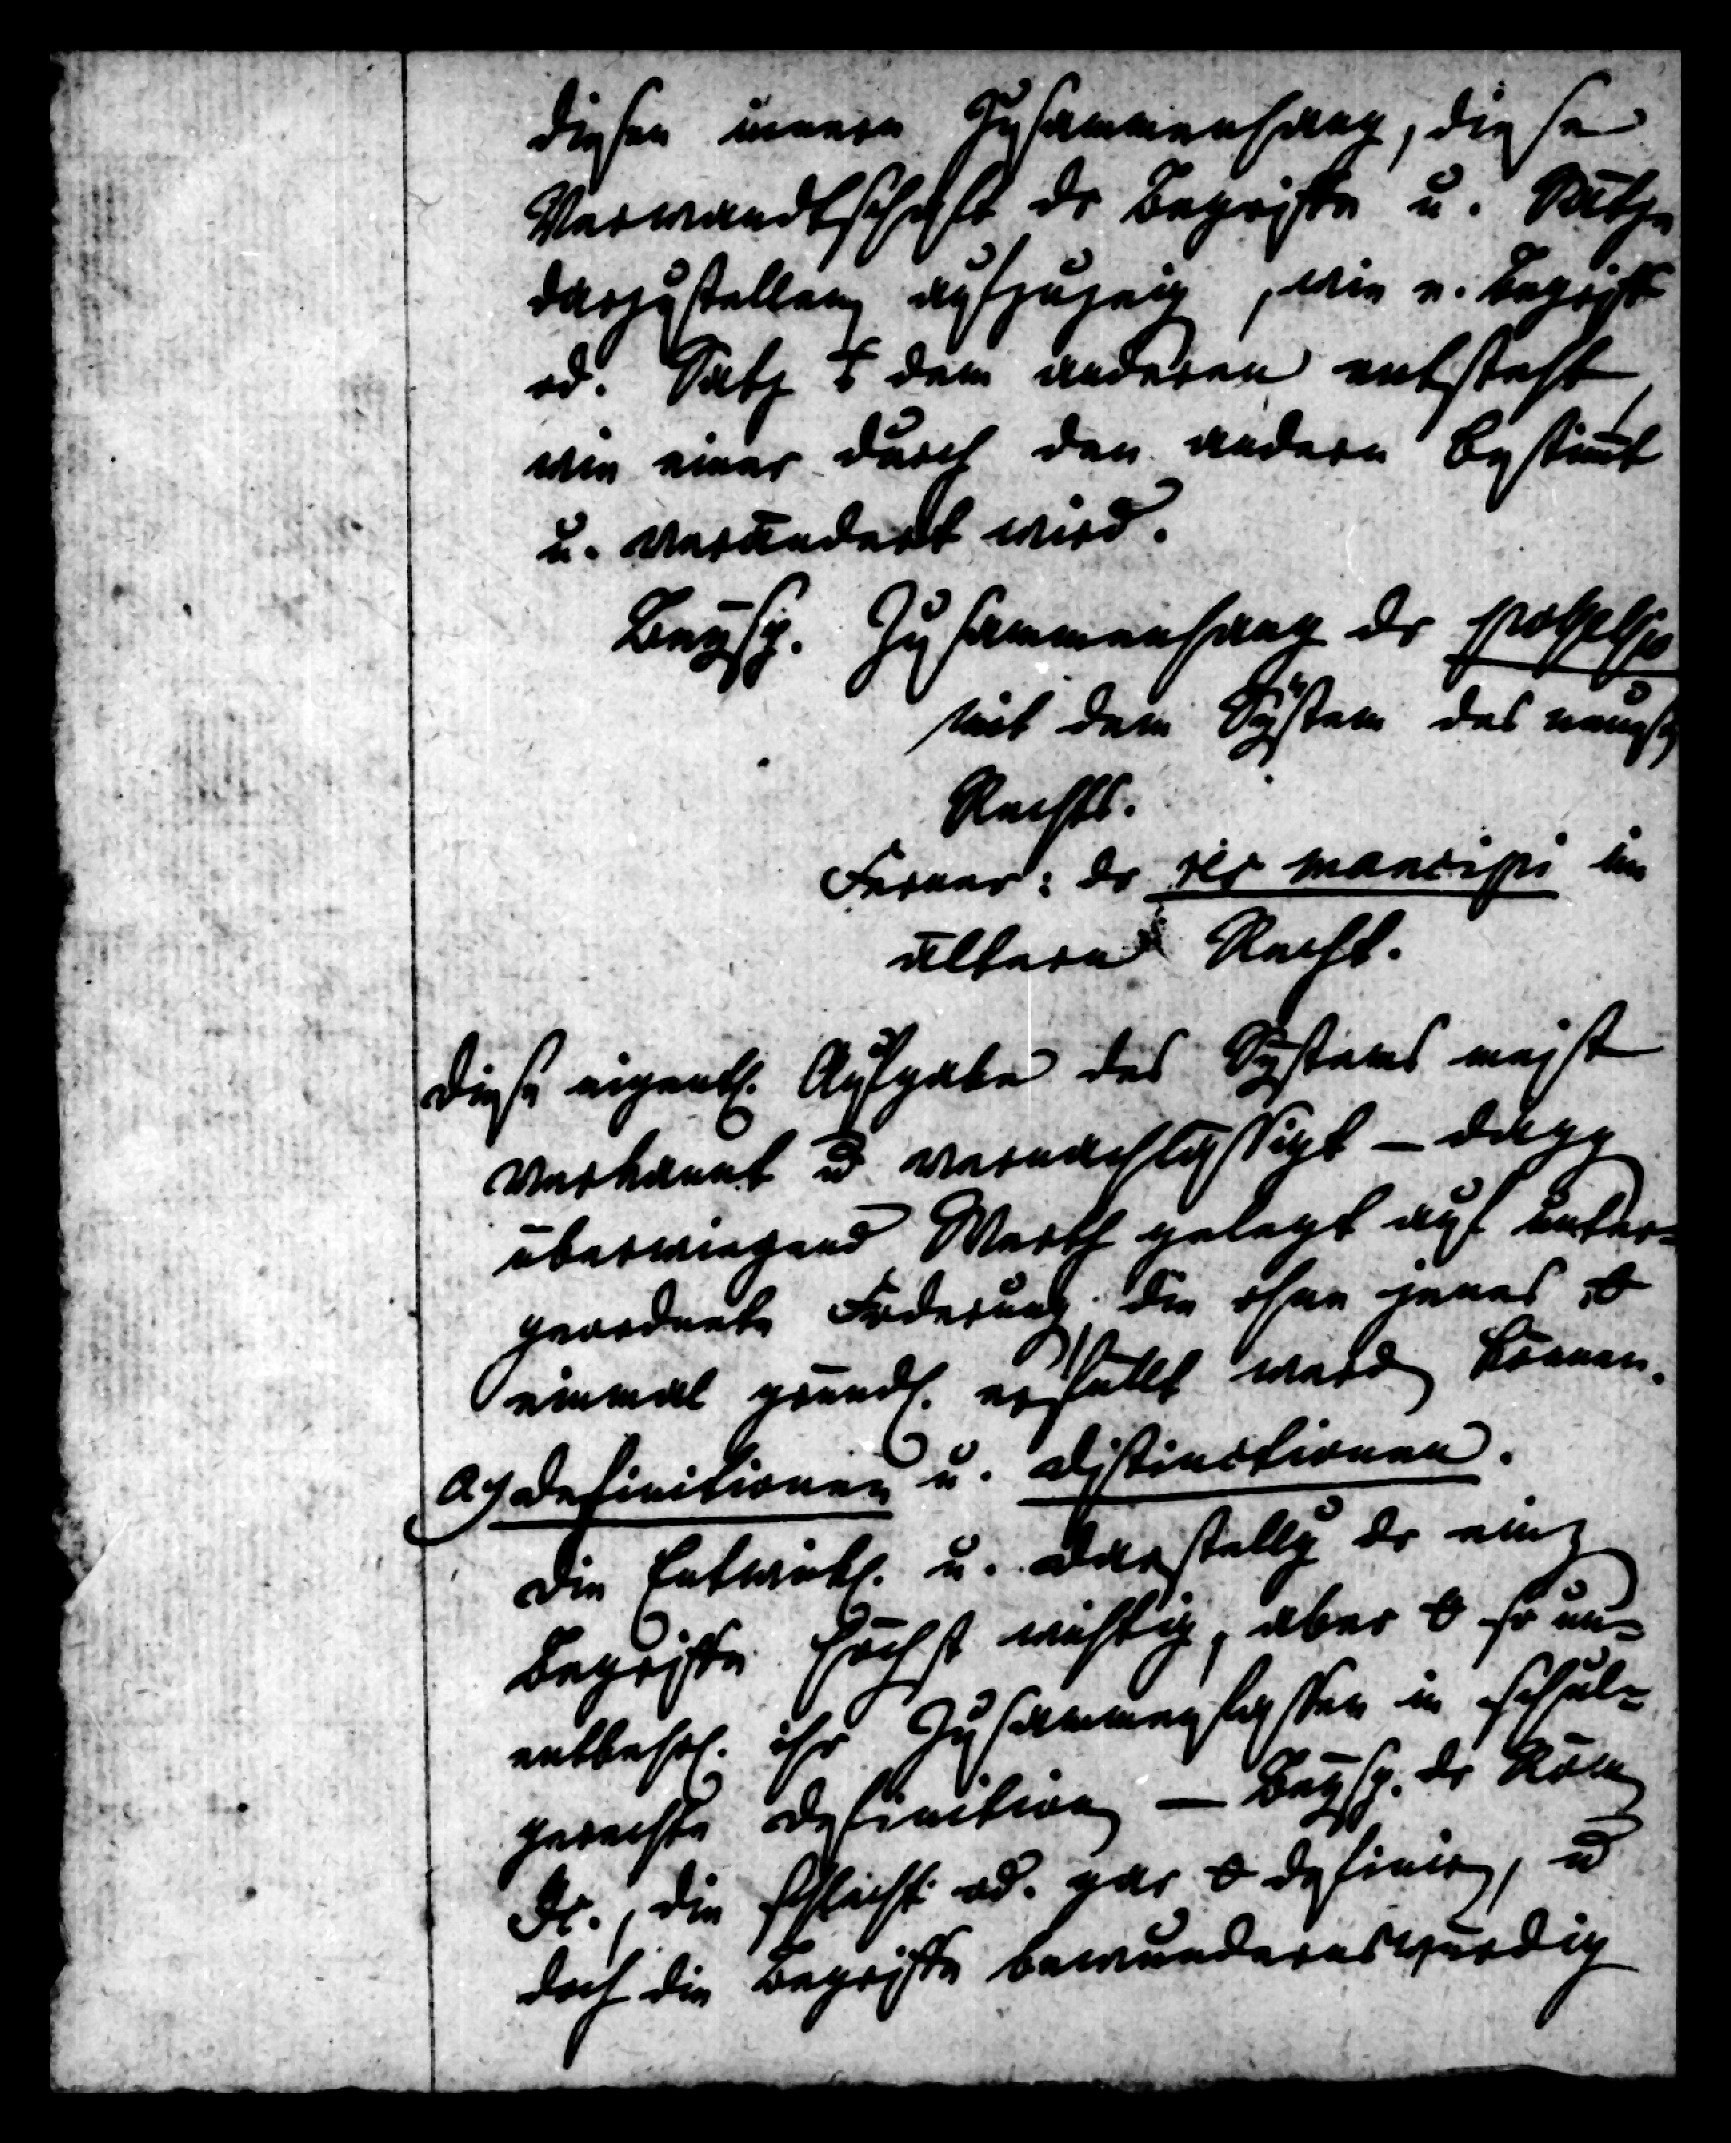 diesen innern Zusammenhang, diese
Verwandtschaft dr Begriffe u. Sätze
darzustellen, aufzuzeig, wie e. Begriff
od. Satz dem anderen entsteht,
wie einer durch den andern bestimt
u. verändert wird.
Beysp. Zusammenhang dr possessio
mit dem System des
Rechts.
Ferner: dr res mancipi im
ältern Recht.
Diese eigentl. Aufgabe des Systems meist
verkannt u vernachlässigt – dagg
überwiegend Werth gelegt auf unter=
geordnete Foderung, die ohne jenes
einmal gründl. erfüllt werd können.
a) Definitionen u. Distinctionen.
Die Entwickl. u. Darstellg dr einz
Begriffe höchst wichtig, aber so un=
entbehrl. ihr Zusammenfassen in schul=
gerechte Definition – Beysp. dr Röm
Jr., die schlecht od. gar definir, u
doch die Begriffe bewundernswürdig